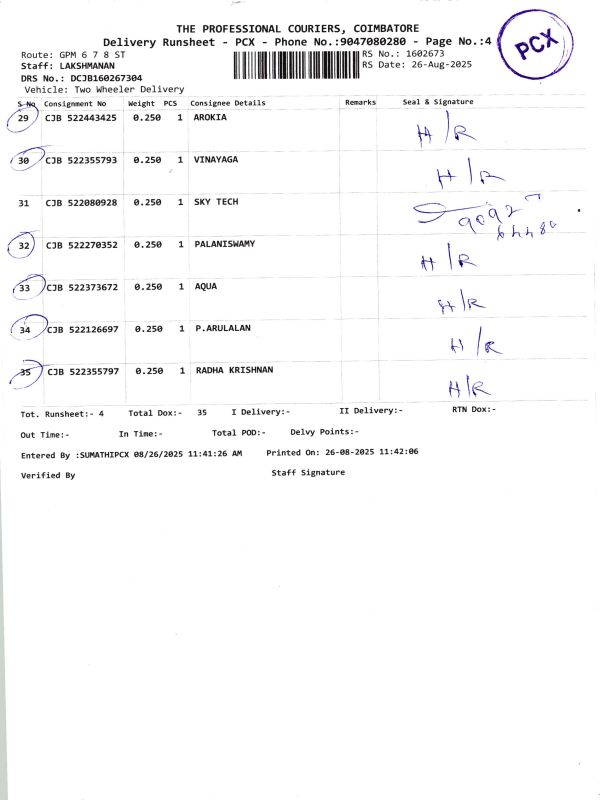 THE PROFESSIONAL COURIERS, COIMBATORE
Delivery Runsheet - PCX - Phone No.:9047080280 - Page No.:4
PCX
Route: GPM 6 7 8 ST RS No.: 1602673
Staff: LAKSHMANAN RS Date: 26-Aug-2025
DRS No.: DCJB160267304
Vehicle: Two Wheeler Delivery
S No Consignment No Weight PCS Consignee Details Remarks Seal & Signature
29 CJB 522443425 0.250 1 AROKIA H/R
30 CJB 522355793 0.250 1 VINAYAGA H/R
31 CJB 522080928 0.250 1 SKY TECH
32 CJB 522270352 0.250 1 PALANISWAMY H/R
33 CJB 522373672 0.250 1 AQUA H/R
34 CJB 522126697 0.250 1 P.ARULALAN H/R
35 CJB 522355797 0.250 1 RADHA KRISHNAN H/R
Tot. Runsheet:- 4 Total Dox:- 35 I Delivery:- II Delivery:- RTN Dox:-
Out Time:- In Time:- Total POD:- Delvy Points:-
Entered By :SUMATHIPCX 08/26/2025 11:41:26 AM Printed On: 26-08-2025 11:42:06
Verified By Staff Signature